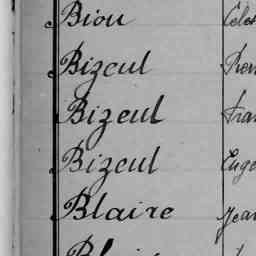 Biou Céles
Bizeul Pier
Bizeul Fran
Bizeul Euge
Blaire Jean